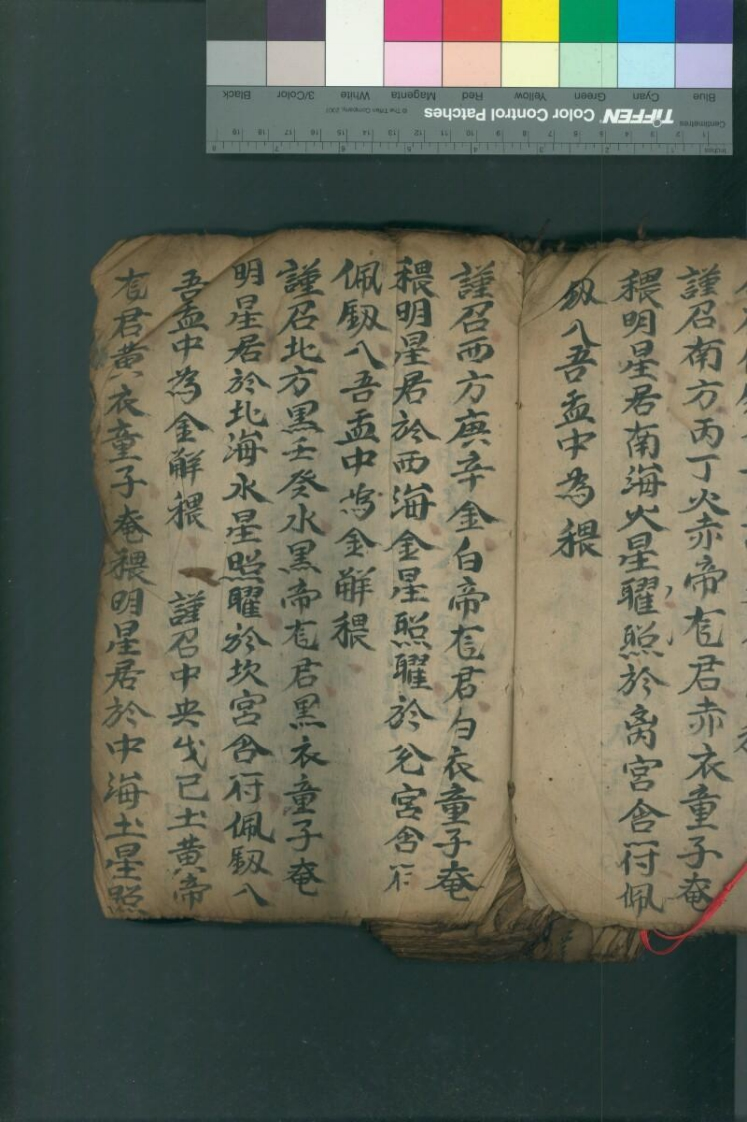 謹召南方丙丁火赤帝君赤衣童子奄
穢明星居南海火星耀照於离宮含符佩
釼入吾盂中為穢
謹召西方庚辛金白帝君白衣童子奄
穢明星居於西海金星照耀於兌宮含符
佩釼入吾盂中為金解穢
謹召北方黑壬癸水黑帝君黑衣童子奄
明星居於北海水星照耀於坎宮含符佩釼入
吾盂中為金解穢 謹召中央戊己土黃帝
君黃衣童子奄穢明星居於中海土星照
Blue Cyan Green Yellow Red Magenta White 3/Color Black
TIFFEN Color Control Patches © The Tiffen Company, 2007
Centimetres
Inches